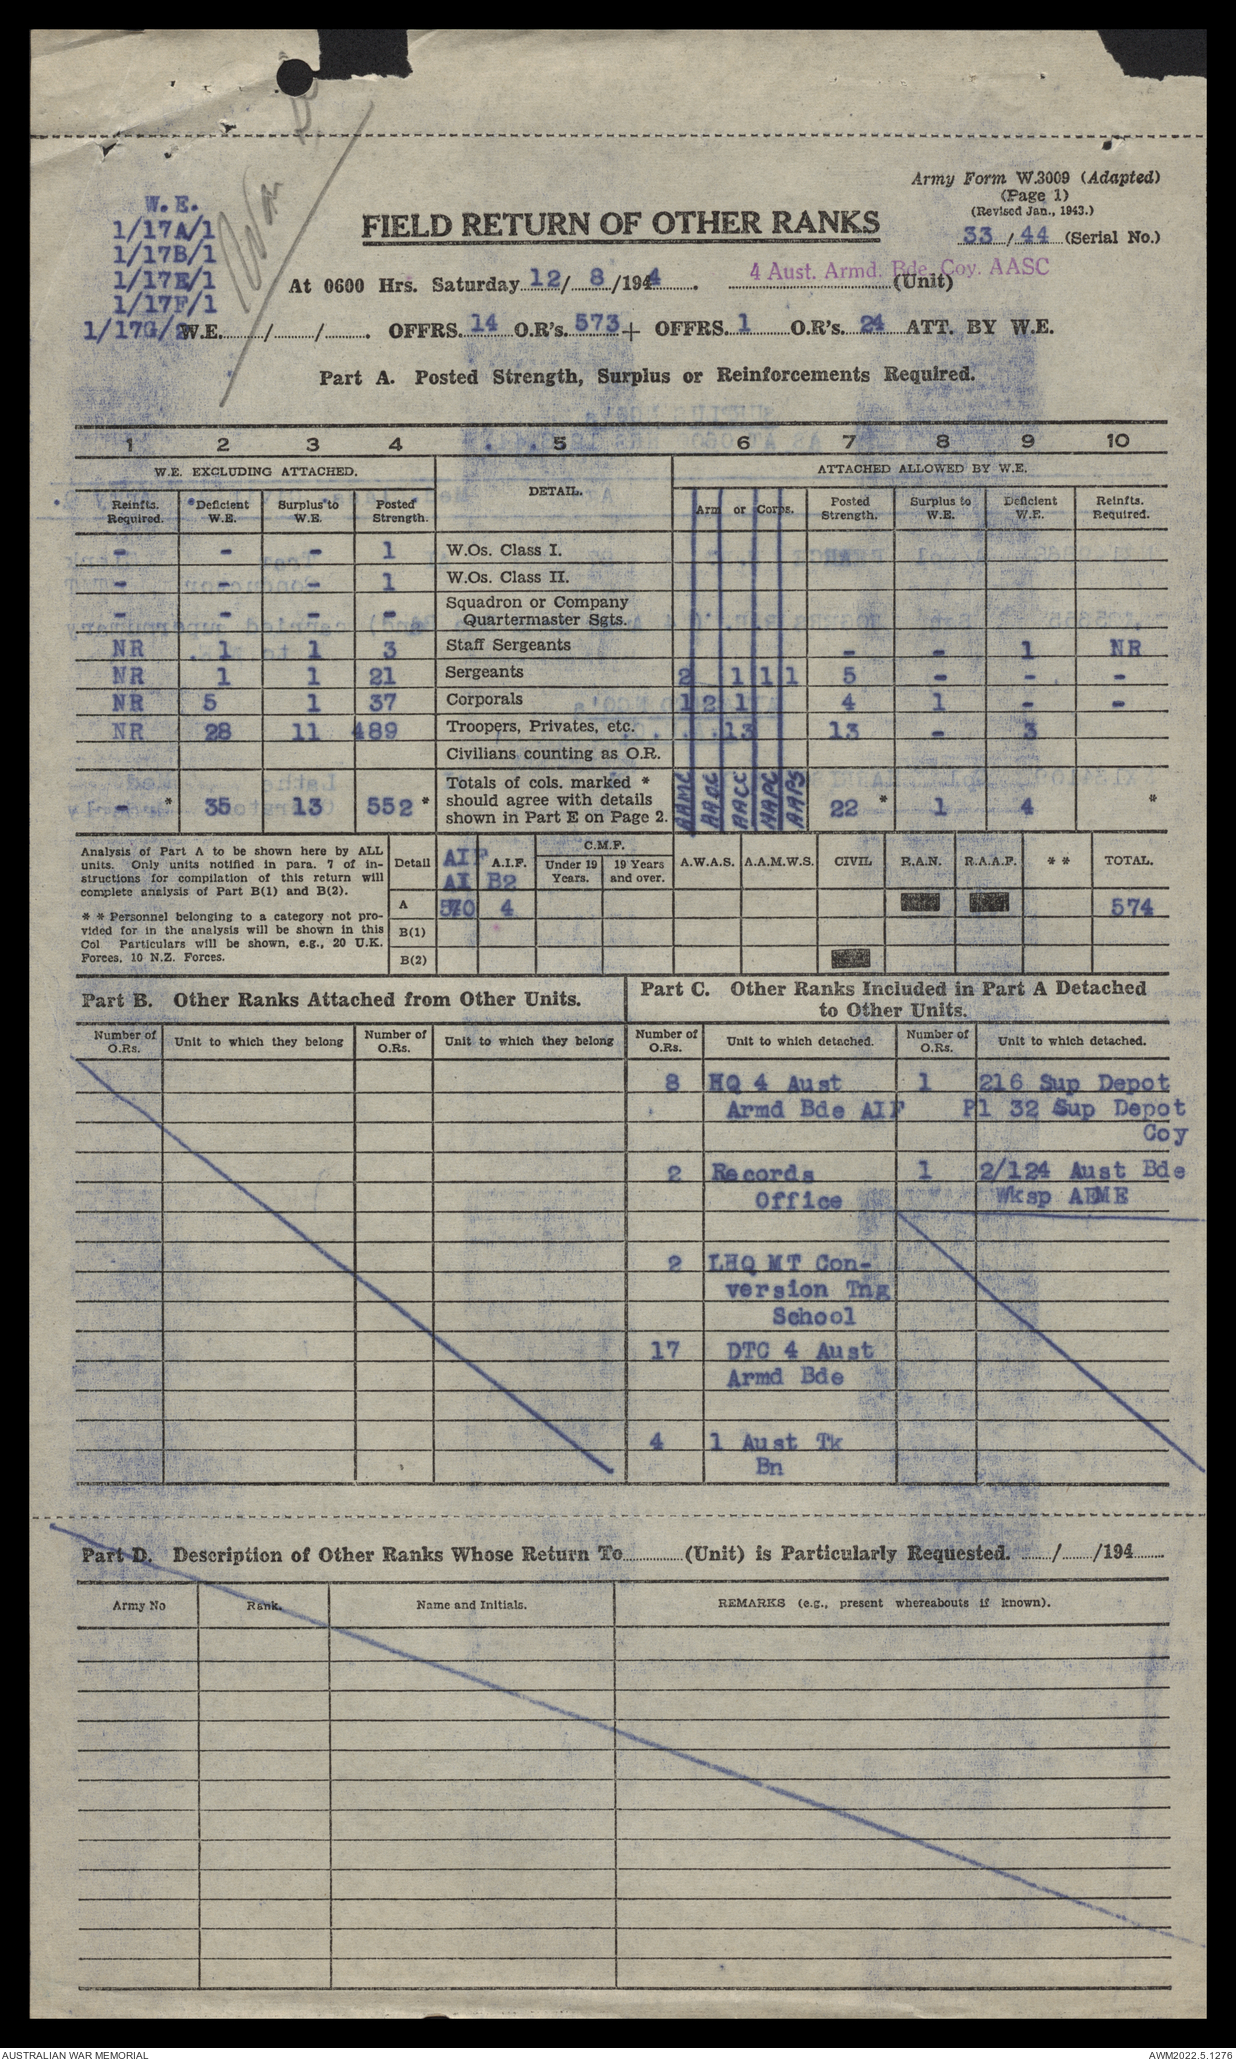 Army Form W.3009 (Adapted)
(Page 1)
(Revised Jan., 1943.)
33 / 44 (Serial No.)
W.E.
1/17A/1
1/17B/1
1/17E/1
1/17F/1
1/17G/2
FIELD RETURN OF OTHER RANKS
At 0600 Hrs. Saturday 12/ 8 /1944. 4 Aust. Armd. Bde. Coy. AASC (Unit)
W.E. / / . OFFRS. 14 O.R's. 573 + OFFRS. 1 O.R's. 24 ATT. BY W.E.
Part A. Posted Strength, Surplus or Reinforcements Required.
1 2 3 4 5 6 7 8 9 10
W.E. EXCLUDING ATTACHED. DETAIL. ATTACHED ALLOWED BY W.E.
Reinfts. Required. Deficient W.E. Surplus to W.E. Posted Strength. Arm or Corps. Posted Strength. Surplus to W.E. Deficient W.E. Reinfts. Required.
- - - 1 W.Os. Class I.
- - - 1 W.Os. Class II.
- - - - Squadron or Company Quartermaster Sgts.
NR 1 1 3 Staff Sergeants - - 1 NR
NR 1 1 21 Sergeants 2 1 1 1 5 - - -
NR 5 1 37 Corporals 1 2 1 4 1 - -
NR 28 11 489 Troopers, Privates, etc. 13 13 - 3
Civilians counting as O.R.
- * 35 13 552 * Totals of cols. marked * should agree with details shown in Part E on Page 2. AAMC AAOC AACC AAPC AAPS 22 * 1 4 *
Analysis of Part A to be shown here by ALL
units. Only units notified in para. 7 of in-
structions for compilation of this return will
complete analysis of Part B(1) and B(2).
* * Personnel belonging to a category not pro-
vided for in the analysis will be shown in this
Col Particulars will be shown, e.g., 20 U.K.
Forces, 10 N.Z. Forces.
Detail AIF A1 A.I.F. B2 C.M.F. Under 19 Years. 19 Years and over. A.W.A.S. A.A.M.W.S. CIVIL R.A.N. R.A.A.F. * * TOTAL.
A 570 4 574
B(1)
B(2)
Part B. Other Ranks Attached from Other Units.
Number of O.Rs. Unit to which they belong Number of O.Rs. Unit to which they belong
Part C. Other Ranks Included in Part A Detached
to Other Units.
Number of O.Rs. Unit to which detached. Number of O.Rs. Unit to which detached.
8 HQ 4 Aust 1 216 Sup Depot
Armd Bde AIF Pl 32 Sup Depot
Coy
2 Records 1 2/124 Aust Bde
Office Wksp AEME
2 LHQ MT Con-
version Tng
School
17 DTC 4 Aust
Armd Bde
4 1 Aust Tk
Bn
Part D. Description of Other Ranks Whose Return To (Unit) is Particularly Requested. / /194
Army No Rank. Name and Initials. REMARKS (e.g., present whereabouts if known).
AUSTRALIAN WAR MEMORIAL AWM2022.5.1276